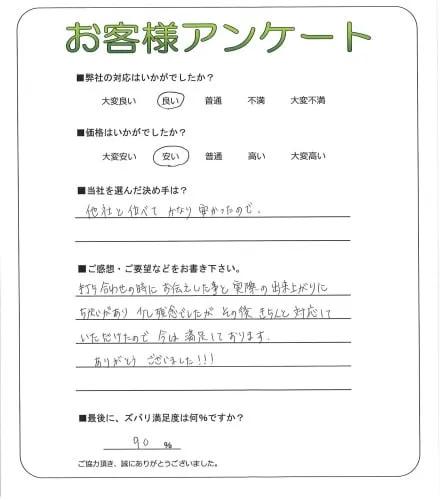 お客様アンケート
■弊社の対応はいかがでしたか?
大変良い 良い 普通 不満 大変不満
■価格はいかがでしたか?
大変安い 安い 普通 高い 大変高い
■当社を選んだ決め手は?
他社と比べて かなり 安かったので.
■ご感想・ご要望などをお書き下さい。
打ち合わせの時に お伝えした事と 実際の 出来上がりに
ちがいがあり 少し残念でしたが その後 きちんと 対応して
いただけたので 今は 満足しております.
ありがとう ございました!!!
■最後に、ズバリ満足度は何%ですか?
90 %
ご協力頂き、誠にありがとうございました。